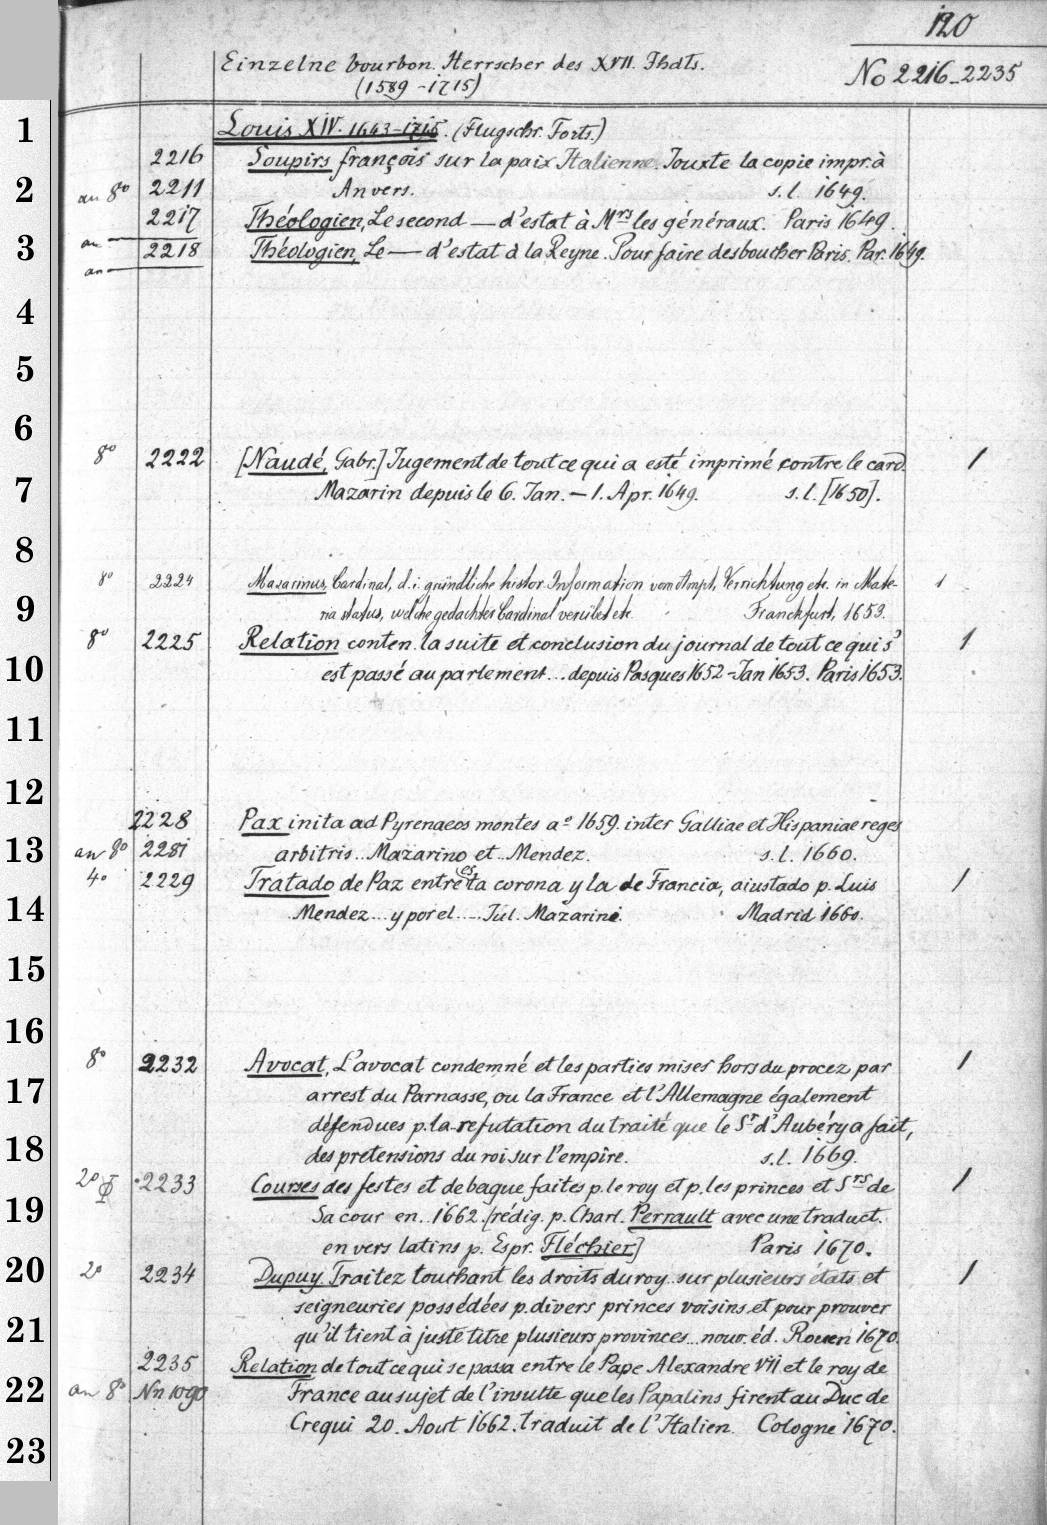 120
Einzelne bourbon. Herrscher des XVII. Jhdts.
(1589-1715)
No 2216-2235
1
Louis XIV. 1643-1715. (Flugschr. Forts.)
2216 Soupirs françois sur la paix Italienne. Jouxte la copie impr. à
2
an 8° 2211 Anvers. s.l. 1649.
2217 Théologien, Le second — d'estat à Mrs les généraux. Paris 1649.
3
an 2218 Théologien, Le — d'estat à la Reyne. Pour faire desboucher Paris. Par. 1649.
an
4
5
6
8° 2222 [Naudé, Gabr.] Jugement de tout ce qui a esté imprimé contre le card. 1
7
Mazarin depuis le 6. Jan. – 1. Apr. 1649. s.l. [1650].
8
8° 2224 Mazarinus, Cardinal, d.i. gründliche histor. Information vom Ampt, Verrichtung etc. in Mate- 1
9
ria status, welche gedachter Cardinal verübet etc. Franckfurt, 1653.
8° 2225 Relation conten. la suite et conclusion du journal de tout ce qui s' 1
10
est passé au parlement... depuis Pasques 1652-Jan 1653. Paris 1653.
11
12
2228 Pax inita ad Pyrenaeos montes a° 1659. inter Galliae et Hispaniae reges
13
an 8° 2281 arbitris... Mazarino et.. Mendez. s.l. 1660.
4° 2229 Tratado de Paz entre esta corona y la de Francia, aiustado p. Luis 1
14
Mendez... y por el.... Jul. Mazarini. Madrid 1660.
15
16
8° 2232 Avocat, L'avocat condemné et les parties mises hors du procez par 1
17
arrest du Parnasse, ou la France et l'Allemagne également
défendues p. la refutation du traité que le Sr d'Aubéry a fait,
18
des pretensions du roi sur l'empire. s.l. 1669.
2° 2233 Courses des festes et de bague faites p. le roy et p. les princes et Srs de 1
19
Sa cour en. 1662. [rédig. p. Charl. Perrault avec une traduct.
en vers latins p. Espr. Fléchier] Paris 1670.
20
2° 2234 Dupuy. Traitez touchant les droits du roy sur plusieurs états et 1
seigneuries possédées p. divers princes voisins et pour prouver
21
qu'il tient à juste titre plusieurs provinces... nouv. éd. Rouen 1670.
2235 Relation de tout ce qui se passa entre le Pape Alexandre VII et le roy de
22
an 8° Nn 1090 France au sujet de l'insulte que les Papalins firent au Duc de
Crequi 20. Aout 1662. traduit de l'Italien. Cologne 1670.
23